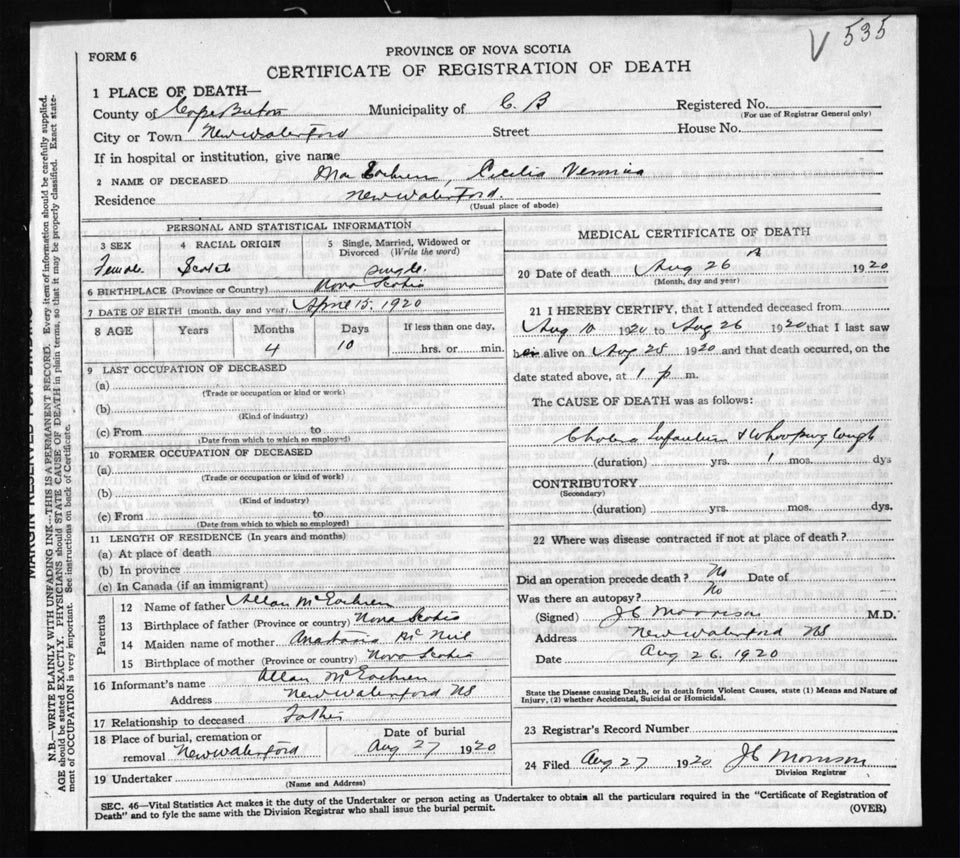 V 535
FORM 6
PROVINCE OF NOVA SCOTIA
CERTIFICATE OF REGISTRATION OF DEATH
1 PLACE OF DEATH—
County of Cape Breton Municipality of C. B Registered No.
(For use of Registrar General only)
City or Town New Waterford Street House No.
If in hospital or institution, give name
2 NAME OF DECEASED Mac Eachren, Cecilia Veronica
Residence New Waterford.
(Usual place of abode)
PERSONAL AND STATISTICAL INFORMATION
3 SEX 4 RACIAL ORIGIN 5 Single, Married, Widowed or Divorced (Write the word)
Female Scotch single
6 BIRTHPLACE (Province or Country) Nova Scotia
7 DATE OF BIRTH (month, day and year) April 15. 1920
8 AGE Years Months Days If less than one day,
4 10 hrs. or min.
9 LAST OCCUPATION OF DECEASED
(a)
(Trade or occupation or kind or work)
(b)
(Kind of industry)
(c) From to
(Date from which to which so employed)
10 FORMER OCCUPATION OF DECEASED
(a)
(Trade or occupation or kind of work)
(b)
(Kind of industry)
(c) From to
(Date from which to which so employed)
11 LENGTH OF RESIDENCE (In years and months)
(a) At place of death
(b) In province
(c) In Canada (if an immigrant)
Parents
12 Name of father Allan McEachren
13 Birthplace of father (Province or country) Nova Scotia
14 Maiden name of mother Anastasia McNeil
15 Birthplace of mother (Province or country) Nova Scotia
16 Informant's name Allan McEachren
Address New Waterford NS
17 Relationship to deceased Father
18 Place of burial, cremation or removal New Waterford
Date of burial
Aug 27 1920
19 Undertaker
(Name and Address)
MEDICAL CERTIFICATE OF DEATH
20 Date of death Aug 26 1920
(Month, day and year)
21 I HEREBY CERTIFY, that I attended deceased from
Aug 10 1920 to Aug 26 1920 that I last saw
her alive on Aug 25 1920 and that death occurred, on the
date stated above, at 1 p m.
The CAUSE OF DEATH was as follows:
Cholera Infantum & Whooping Cough
(duration) yrs. 1 mos. dys
CONTRIBUTORY
(Secondary)
(duration) yrs. mos. dys.
22 Where was disease contracted if not at place of death?
Did an operation precede death? No Date of
Was there an autopsy? No
(Signed) JC Morrison M.D.
Address New Waterford NS
Date Aug 26. 1920
State the Disease causing Death, or in death from Violent Causes, state (1) Means and Nature of
Injury, (2) whether Accidental, Suicidal or Homicidal.
23 Registrar's Record Number
24 Filed Aug 27 1920 JC Morrison
Division Registrar
SEC. 46—Vital Statistics Act makes it the duty of the Undertaker or person acting as Undertaker to obtain all the particulars required in the "Certificate of Registration of
Death" and to fyle the same with the Division Registrar who shall issue the burial permit.
(OVER)
N.B.—WRITE PLAINLY WITH UNFADING INK—THIS IS A PERMANENT RECORD. Every item of information should be carefully supplied.
AGE should be stated EXACTLY. PHYSICIANS should STATE CAUSE OF DEATH in plain terms, so that it may be properly classified. Exact state-
ment of OCCUPATION is very important. See instructions on back of Certificate.